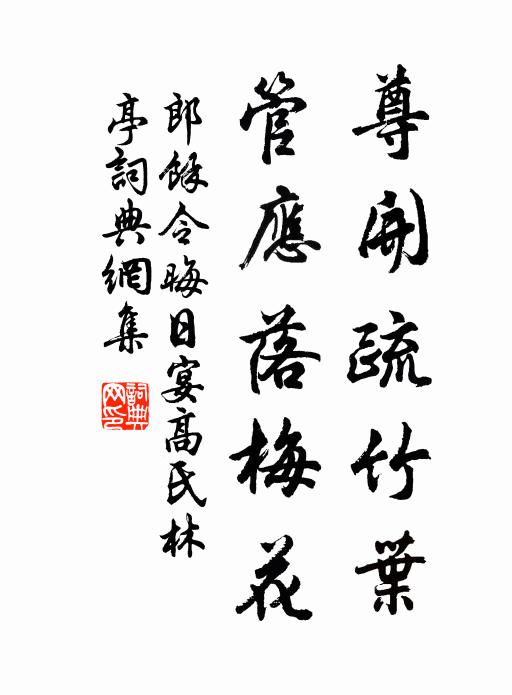 尊開疏竹葉
管應落梅花
郎餘令晦日宴高氏林
亭詞典網集
詞典網印